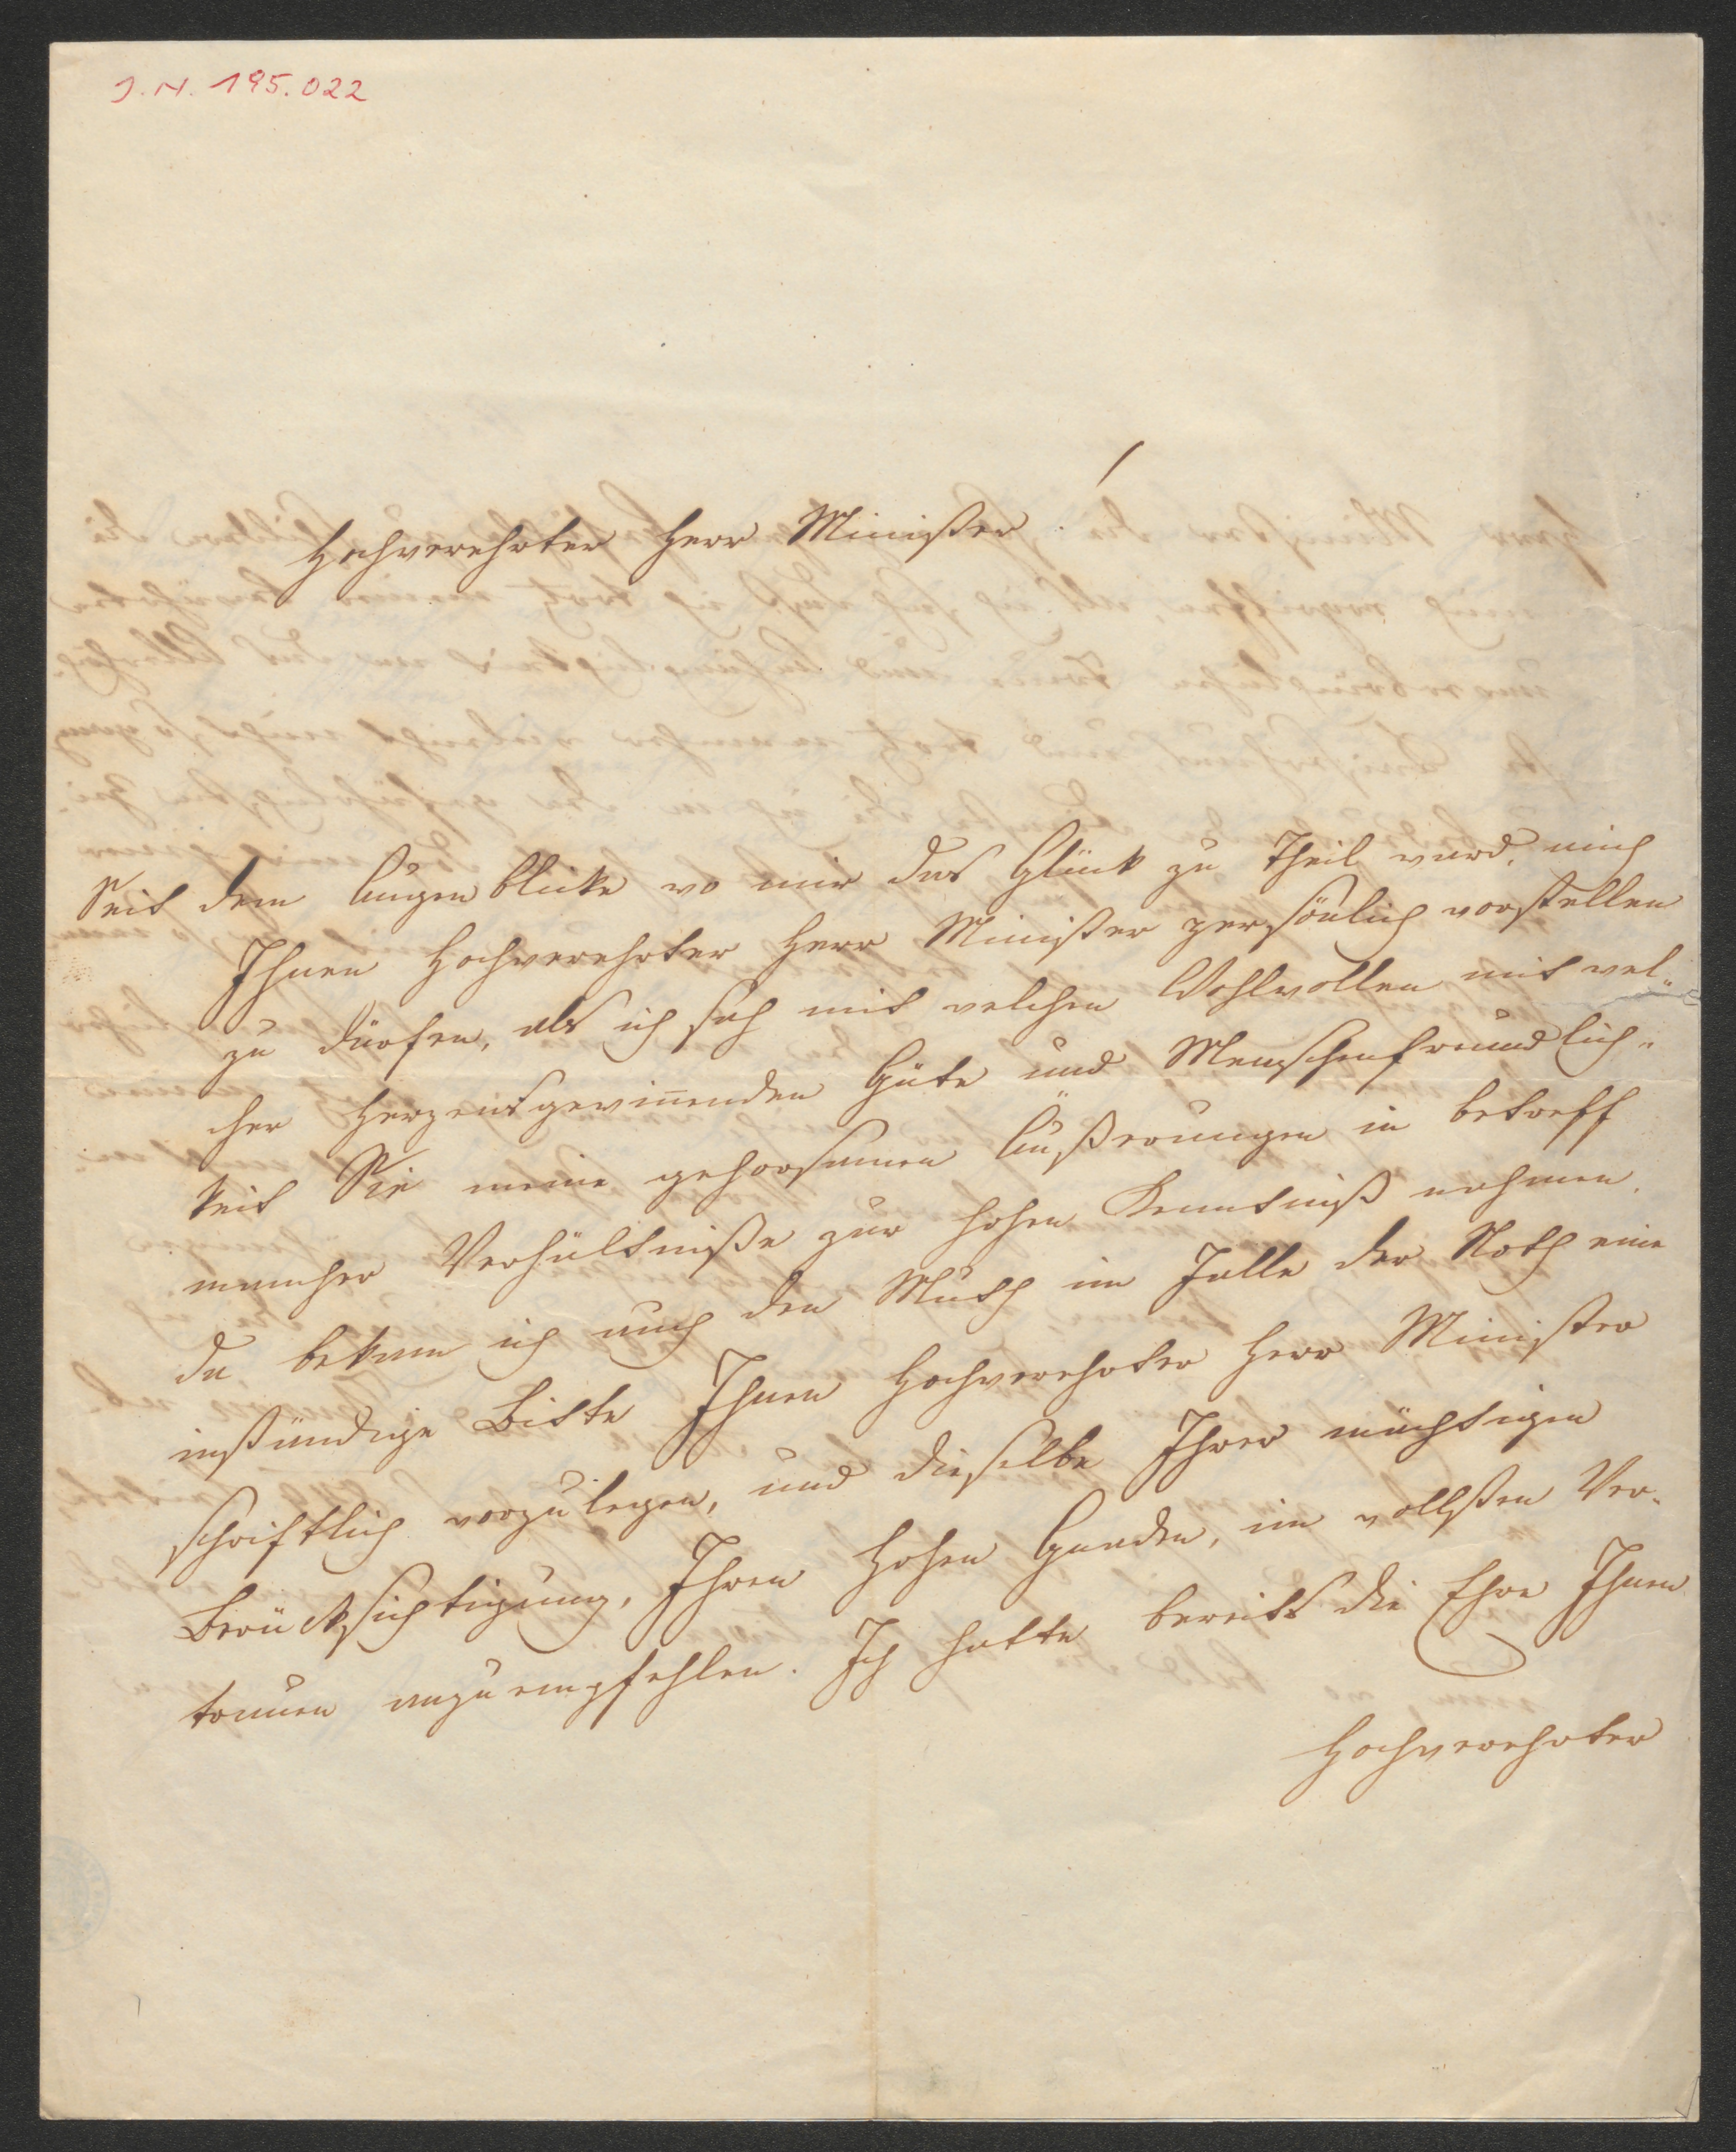 J.N. 195.022
Hochverehrter Herr Minister!
Seit dem Augenblicke wo mir das Glück zu Theil ward, mich
Ihnen Hochverehrter Herr Minister persönlich vorstellen
zu dürfen, als ich sah mit welchen Wohlwollen mit wel„
cher Herzensgewin̄enden Güte und Menschenfreundlich„
keit Sie meine gehorsamen Äußerungen in betreff
mancher Verhältniße zur hohen Kenntniß nahmen,
da bekam ich auch den Muth im Falle der Noth eine
inständige Bitte Ihnen Hochverehrter Herr Minister
schriftlich vorzulegen, und dieselbe Ihrer mächtigen
Berücksichtigung, Ihren Hohen Gnaden, im vollsten Ver-
trauen anzuempfehlen. Ich hatte bereits die Ehre Ihnen
Hochverehrter